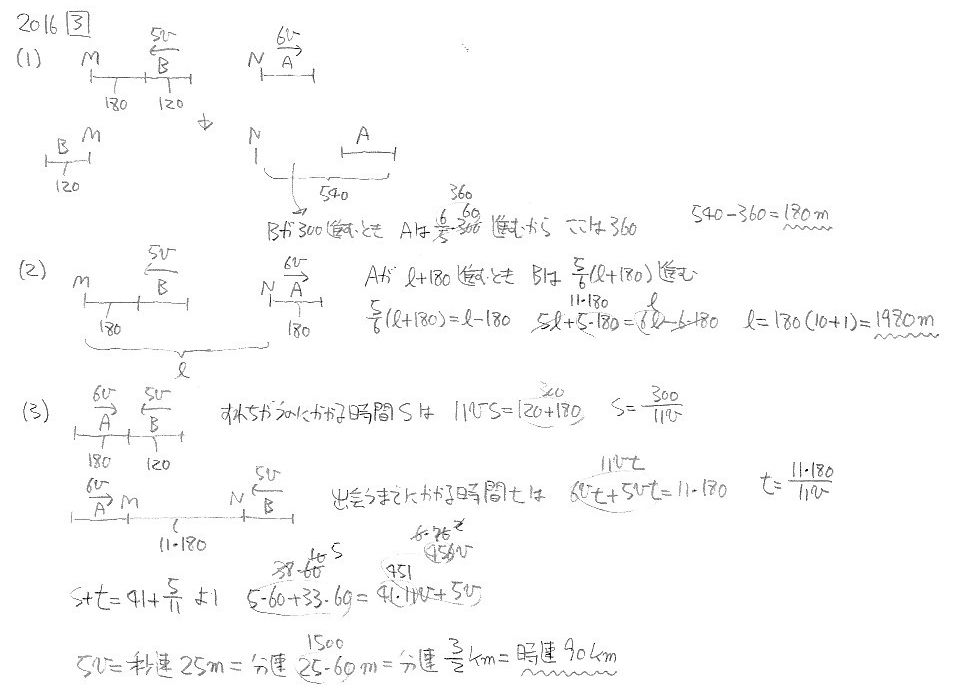 2016 3
(1) M 5v B N 6v A
180 120
B M N A
120 540
Bが300進むとき Aは6/5・300 360 60 進むから ここは360 540-360=180m
(2) M 5v B N 6v A Aが l+180 進むとき Bは 5/6(l+180) 進む
180 180 5/6(l+180)=l-180 5l+5・180=6l-6・180 11・180 l l=180(10+1)=1980m
l
(3) 6v A 5v B すれちがうのにかかる時間Sは 11vS=120+180 300 S=300/11v
180 120
6v A M N 5v B 出会うまでにかかる時間tは 6vt+5vt=11・180 11vt t=11・180/11v
11・180
S+t=41+5/11 より 5・60+33・60=41・11v+5v 38・60 10 5 451 456v
5v=秒速25m=分速25・60m=分速3/2km=時速90km 1500